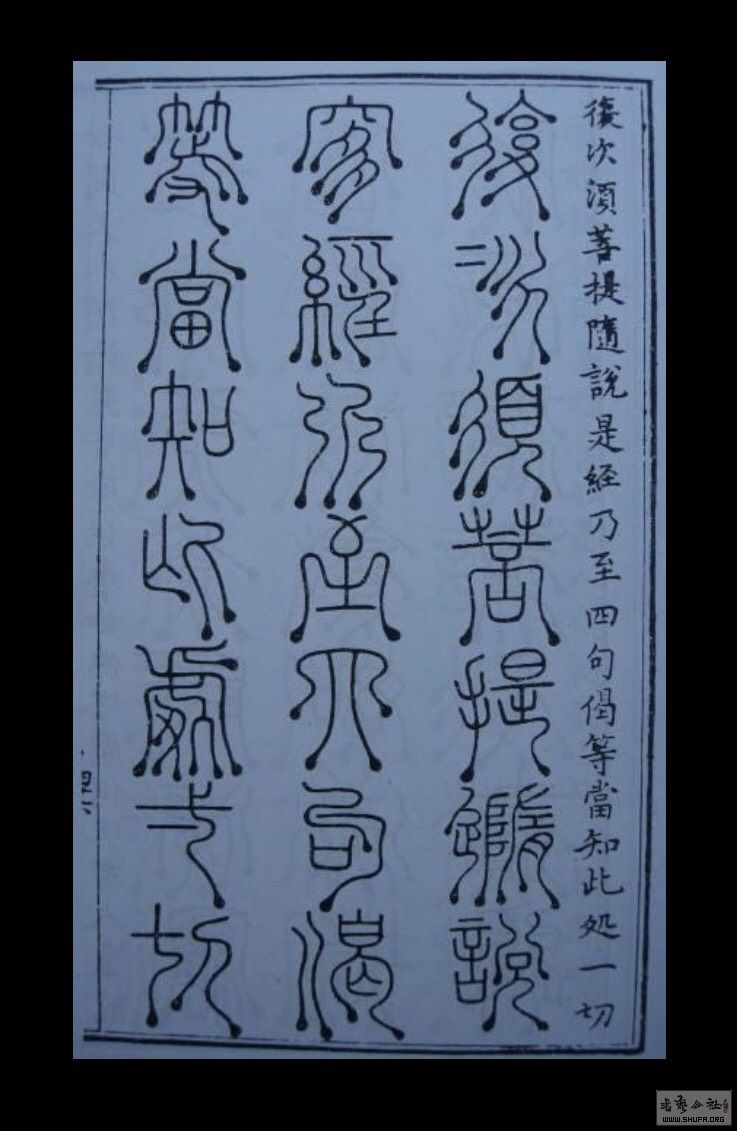 復次須菩提隨說是経乃至四句偈等當知此処一切
復次須菩提隨說
是經乃至四句偈
等當知此處一切
四六
书艺公社
WWW.SHUFA.ORG